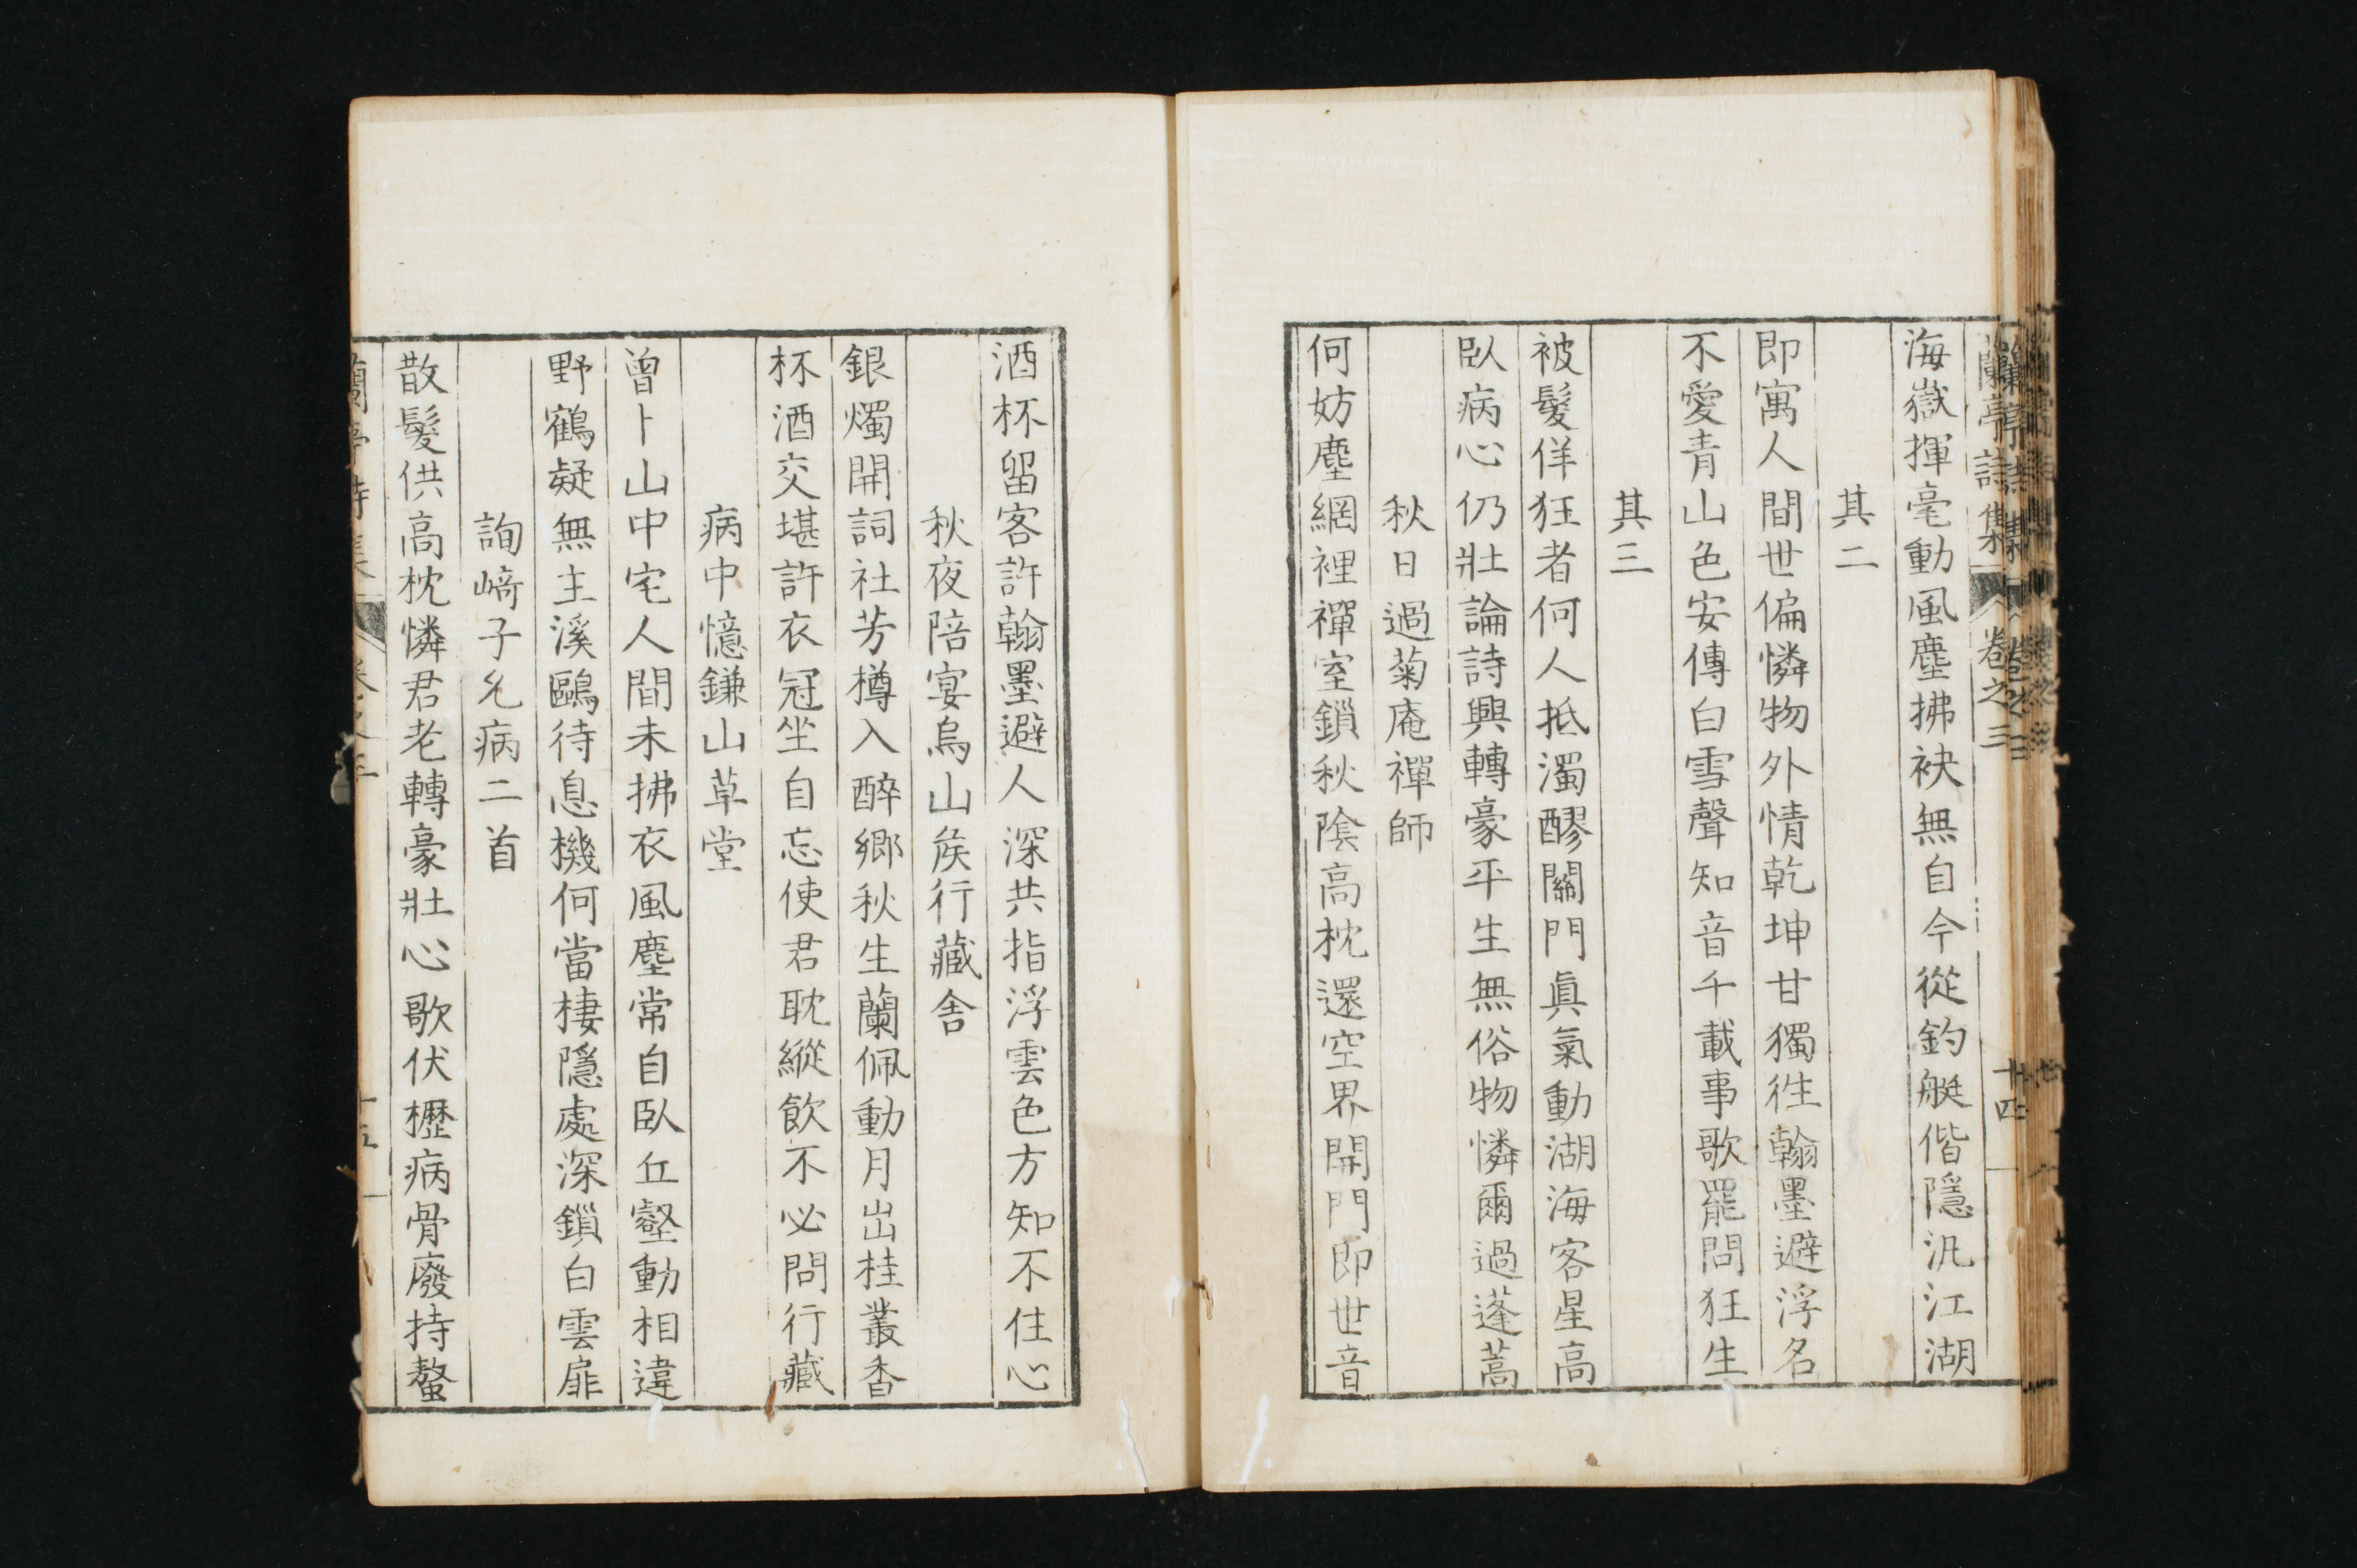 蘭亭詩集 卷之三 十四
海嶽揮毫動風塵拂袂無自今從釣艇偕隱汎江湖
其二
即寓人間世偏憐物外情乾坤甘獨徃翰墨避浮名
不愛青山色安傳白雪聲知音千載事歌罷問狂生
其三
被髮佯狂者何人抵濁醪關門眞氣動湖海客星高
臥病心仍壯論詩興轉豪平生無俗物憐爾過蓬蒿
秋日過菊庵禪師
何妨塵網裡禪室鎖秋陰高枕還空界開門即世音
酒杯留客許翰墨避人深共指浮雲色方知不住心
秋夜陪宴烏山矦行藏舍
銀燭開詞社芳樽入醉鄉秋生蘭佩動月出桂叢香
杯酒交堪許衣冠坐自忘使君耽縱飲不必問行藏
病中憶鎌山草堂
曾卜山中宅人間未拂衣風塵常自臥丘壑動相違
野鶴疑無主溪鷗待息機何當棲隱處深鎖白雲扉
詢﨑子允病二首
散髮供高枕憐君老轉豪壯心歌伏櫪病骨廢持螯